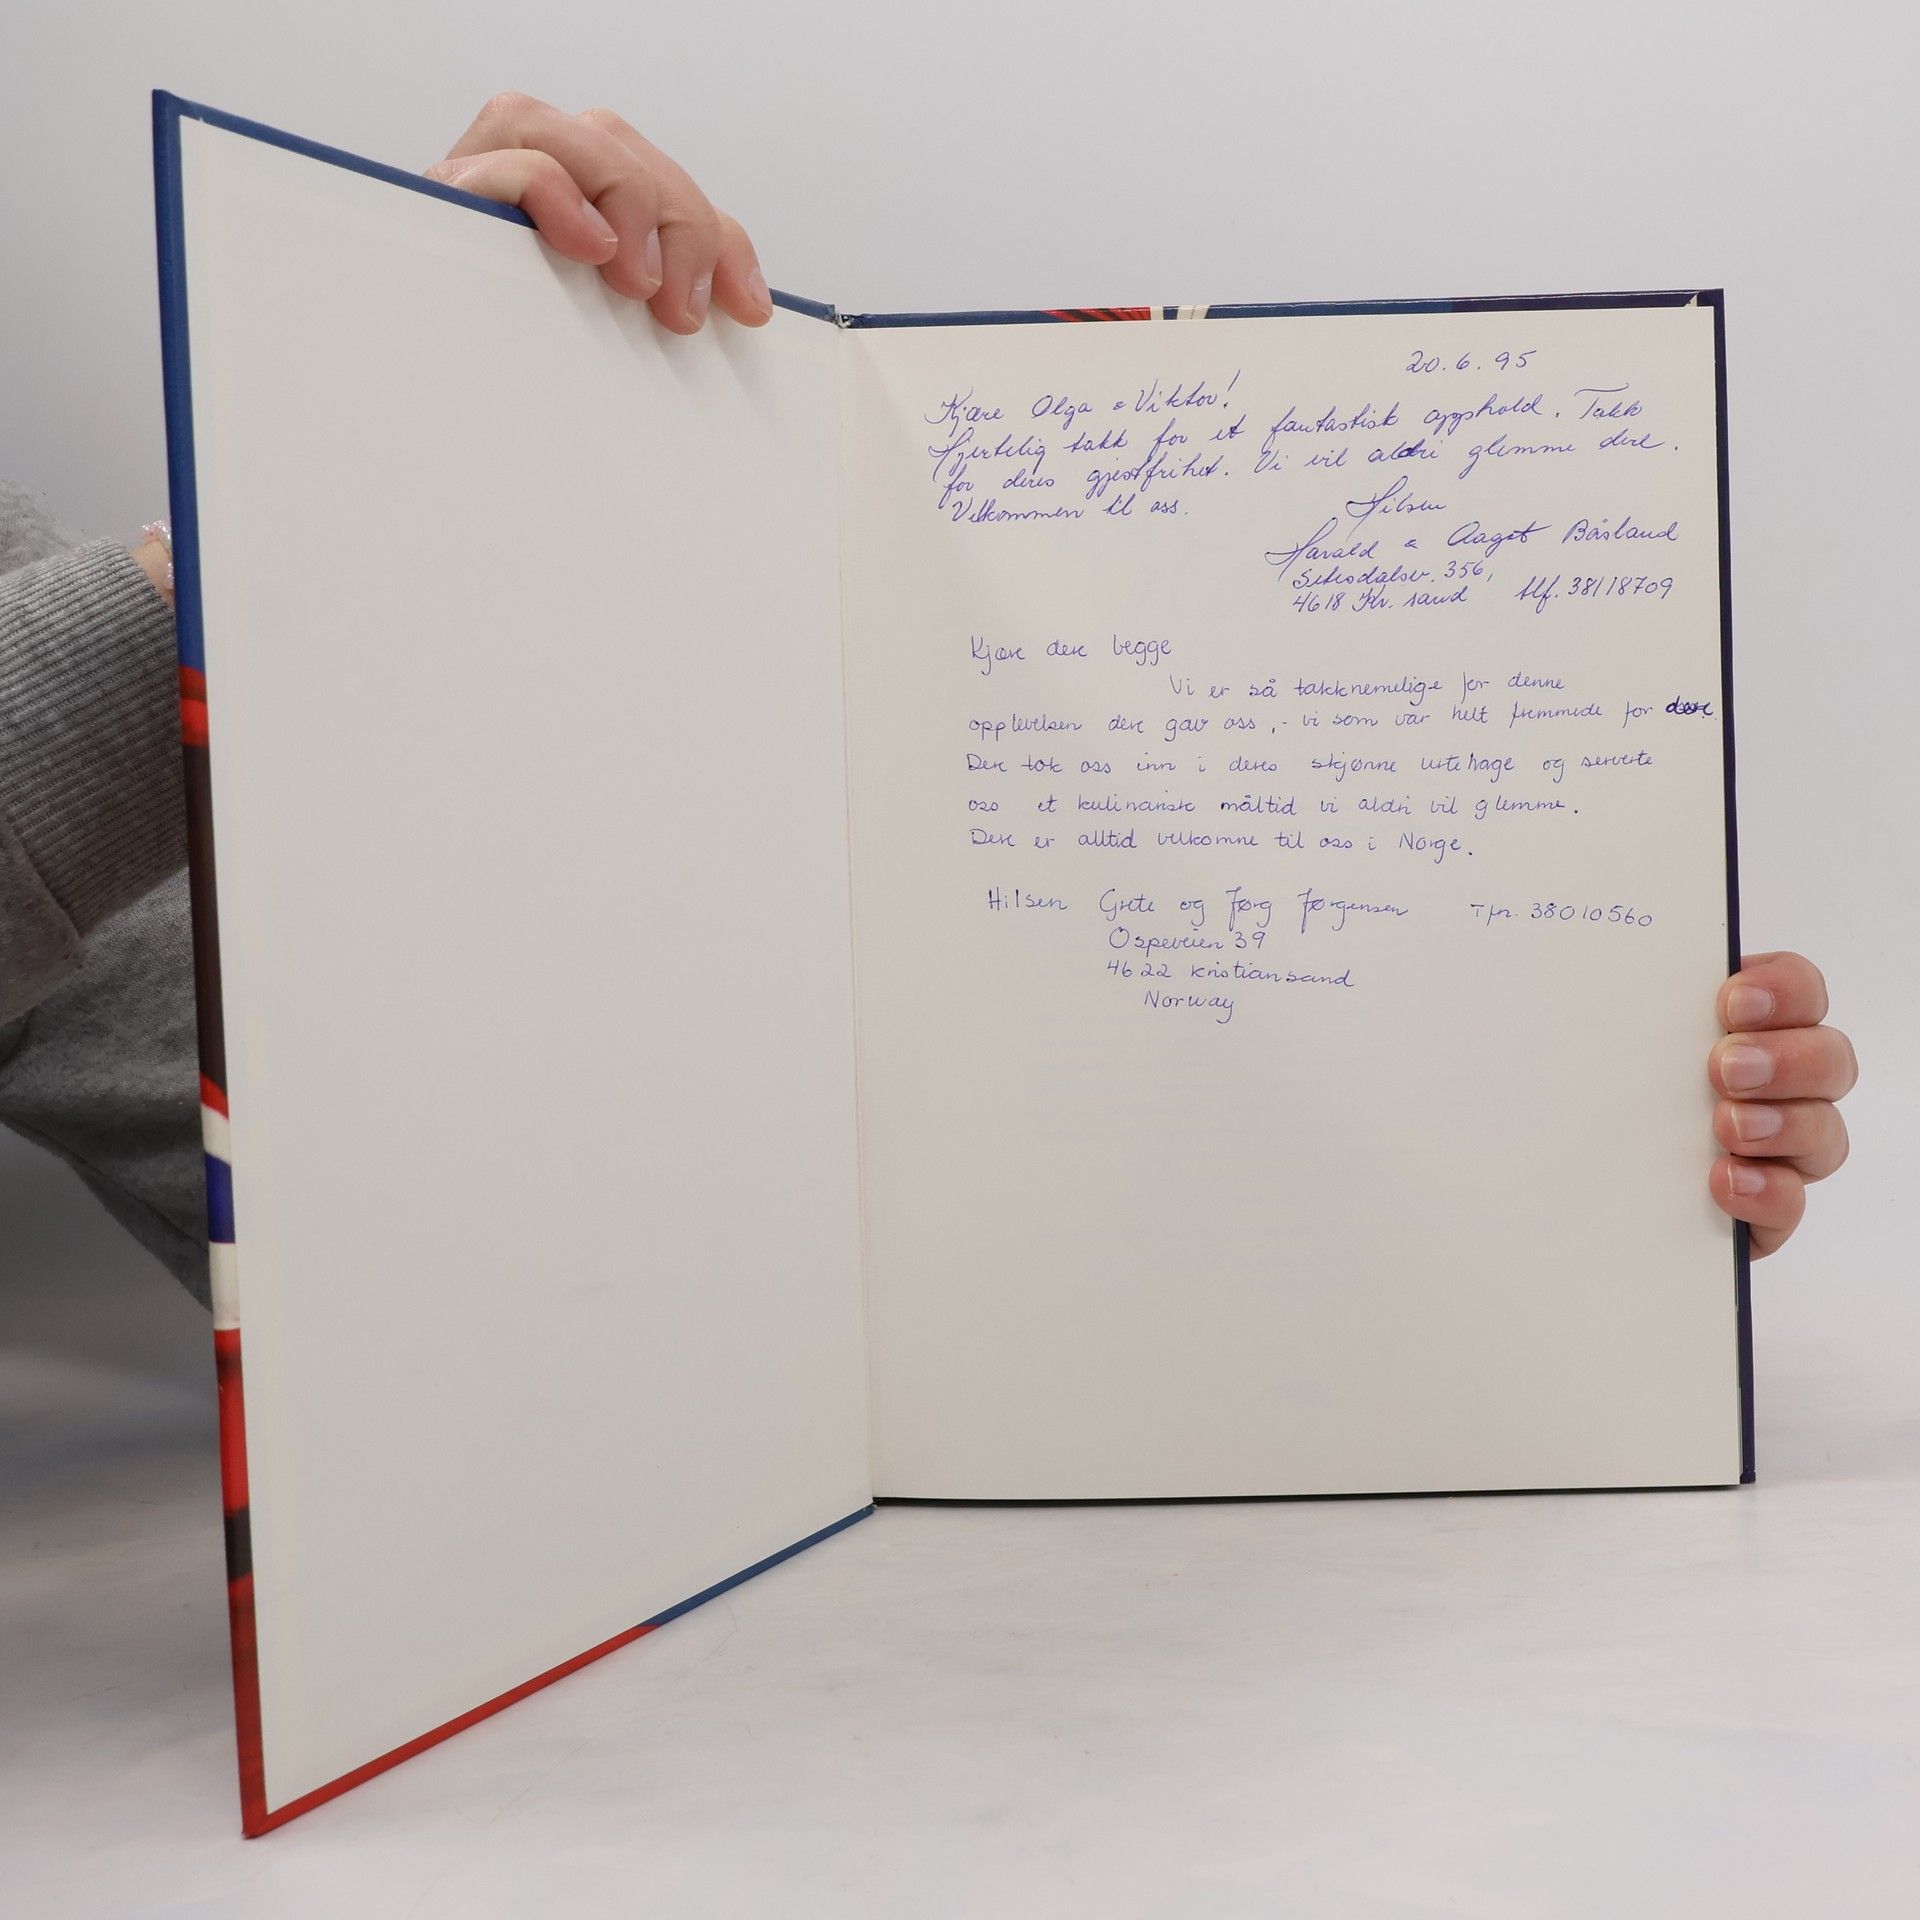 20.6.95
Kjære Olga & Viktor!
Hjertelig takk for et fantastisk opphold. Takk
for deres gjestfrihet. Vi vil aldri glemme dere.
Velkommen til oss.
Hilsen
Harald & Aagot Båsland
Setesdalsv. 356,
4618 Kr. sand tlf. 38118709
Kjære dere begge
Vi er så takknemelige for denne
opplevelsen dere gav oss, - vi som var helt fremmede for dere.
Dere tok oss inn i deres skjønne urtehage og serverte
oss et kulinarisk måltid vi aldri vil glemme.
Dere er alltid velkomne til oss i Norge.
Hilsen Grete og Jørg Jørgensen Tfn. 38010560
Ospeveien 39
4622 Kristiansand
Norway